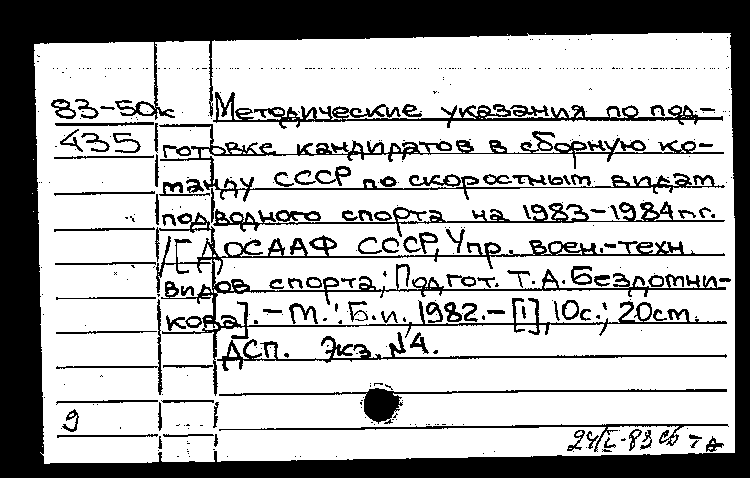 83-50к Методические указания по под-
435 готовке кандидатов в сборную ко-
манду СССР по скоростным видам
подводного спорта на 1983-1984гг.
/[ДОСААФ СССР, Упр. воен.-техн.
видов спорта; Подгот. Т.А.Бездотни-
кова]. - М.: Б.и., 1982. - [1], 10с.; 20см.
ДСП. Экз. №4.
9
24/I-83 сб